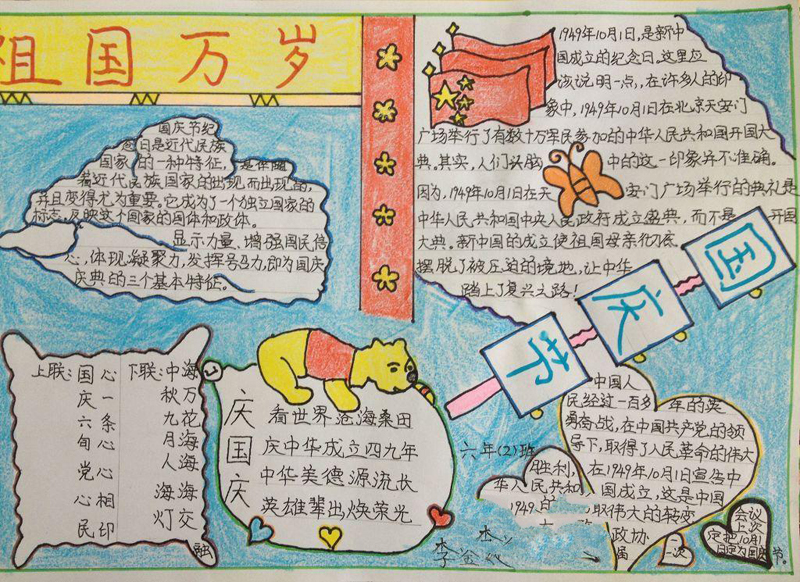 祖国万岁
国庆节纪
念日是近代民族
国家的一种特征，是伴随
着近代民族国家的出现而出现的，
并且变得尤为重要。它成为了一个独立国家的
标志，反映这个国家的国体和政体。
显示力量、增强国民信
心，体现凝聚力，发挥号召力，即为国庆
庆典的三个基本特征。
1949年10月1日，是新中
国成立的纪念日，这里应
该说明一点，在许多人的印
象中，1949年10月1日在北京天安门
广场举行了有数十万军民参加的中华人民共和国开国大
典。其实，人们头脑中的这一印象并不准确。
因为，1949年10月1日在天安门广场举行的典礼是
中华人民共和国中央人民政府成立盛典，而不是开国
大典。新中国的成立使祖国母亲彻底
摆脱了被压迫的境地，让中华
踏上了复兴之路！
国庆节
上联：国庆六旬党心民心一条心心相印
下联：中秋九月人海灯海万花海海交融
庆国庆
看世界沧海桑田
庆中华成立四九年
中华美德源流长
英雄辈出焕荣光
六年(2)班
中国人
民经过一百多年的英
勇奋战，在中国共产党的领
导下，取得了人民革命的伟大
胜利，在1949年10月1日宣告中
华人民共和国成立，这是中国
1949的取伟大的转变
政协
届一次
会议
上次
定把10月1
日定为国庆节。